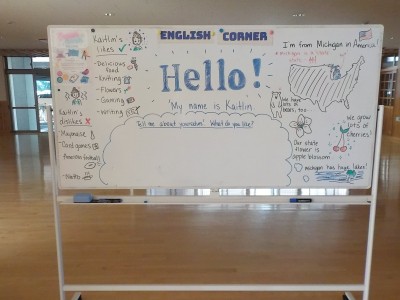 ENGLISH CORNER
Kaitlin's
likes
-Delicious
food
-Knitting
-Flowers
-Gaming
-Writing
Kaitlin's
dislikes
-Mayonaise
-Card games
-American football
Hello!
My name is Kaitlin
Tell me about yourselves! What do you like?
I'm from Michigan in America
Michigan is a state
We have
lots of
bears, too
We grow
lots of
cherries!
Our state
flower is
apple blossom!
michigan has huge lakes!